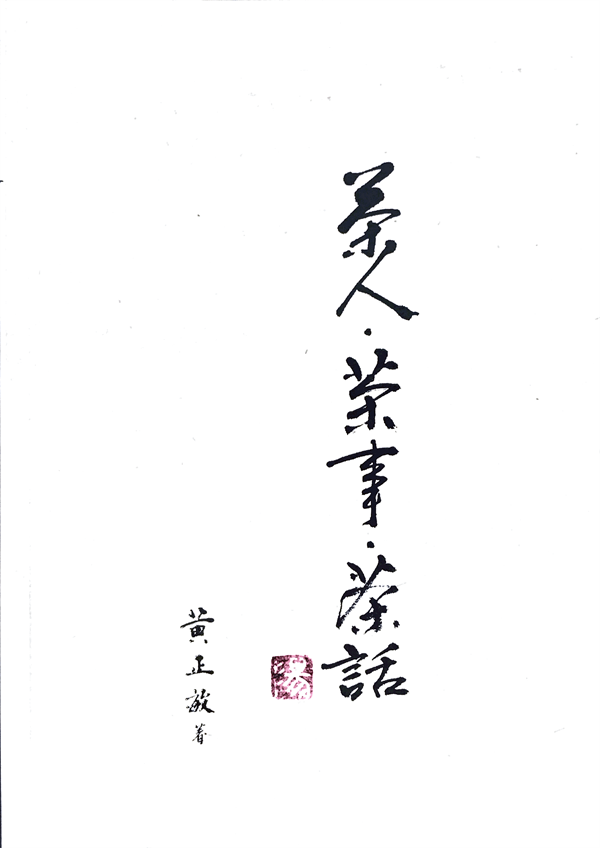 茶人·茶事·茶話
黃正敏著